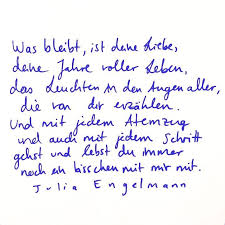 Was bleibt, ist deine Liebe,
deine Jahre voller Leben,
das Leuchten in den Augen aller,
die von dir erzählen.
Und mit jedem Atemzug
und auch mit jedem Schritt
gehst und lebst du immer
noch ein bisschen mit mir mit.
Julia Engelmann